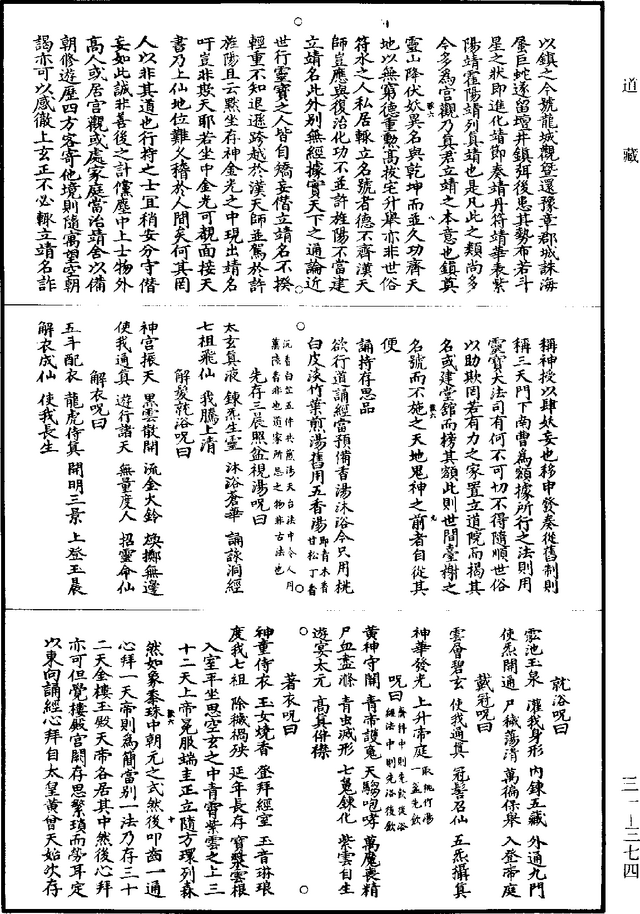 道藏
以鎮之今號龍城觀登還豫章郡城誅海
蜃巨蛇遂留壇井鎮弭後患其勢布若斗
星之狀即進化靖即奏靖丹符靖華表紫
陽靖霍陽靖列真靖也是凡此之類尚多
今多為宮觀乃真君立靖之本意也鎮真
靈山降伏妖異名與乾坤而並久功齊天
地以無窮德重勳高拔宅升舉亦非世俗
符水之人私居輒立名號者德不齊漢天
師豈應與復治化功不並許旌陽不當建
立靖名此外別無經據實天下之通論近
世行靈寶之人皆自矯妄僭立靖名不揆
輕重不知退遜跨越於漢天師並駕於許
旌陽且云默坐存神金光之中現出靖名
吁豈非欺天耶若坐中金光可覩面接天
書乃上仙地位難又稽於人間矣何其罔
人以非其道也行持之士宜稍安分守僭
妄如此誠非善後之計儻塵中上士物外
高人或居宮觀或處家庭當治靖舍以備
朝修遊歷四方客寄他境則隨寓望空朝
謁亦可以感徹上玄正不必輒立靖名詐
稱神授以肆妖妄也移申發奏從舊制則
稱三天門下南曹為額據所行之法則用
靈寶大法司有何不可切不得隨順世俗
以助欺罔若有力之家置立道院而揭其
名或建堂館而榜其額此則世間臺榭之
名號而不施之天地鬼神之前者自從其
便
誦持存思品
欲行道誦經當預備香湯沐浴今只用桃
白皮淡竹葉煎湯舊用五香湯即青木香甘松丁香
沉香白芷五件共煎湯天台法中令人用
萬陵香非也道家所忌之物非古法也
先存三晨照盆視湯呪曰
太玄真液 鍊炁生靈 沐浴蒼華 誦詠洞經
七祖飛仙 我騰上清
解穢就浴呪曰
神宮振天 黑雲散開 流金火鈴 煥擲無邊
使我通真 遊行諸天 無量度人 招靈命仙
解衣呪曰
五斗配衣 龍虎侍真 開明三景 上登玉晨
解衣成仙 使我長生
就浴呪曰
雲池玉泉 灌我身形 內鍊五藏 外通九門
使炁開通 尸穢蕩清 萬福保舉 入登帝庭
戴冠呪曰
雲層碧玄 使我通真 冠髻召仙 五炁攝真
神華發光 上升帝庭 取桃竹湯一盃先飲
呪曰
黃神守闕 青帝護魂 天騶咆哮 萬魔喪精
尸血盡滌 青虫滅形 七魄鍊化 紫雲自生
遊宴太元 高真併襟
著衣呪曰
神童侍衣 玉女燒香 登拜經室 玉音琳琅
度我七祖 除穢禍殃 延年長存 寶槩雲根
入室平坐思空玄之中青霄紫雲之上三
十二天上帝冕服端圭正立隨方環列森
然如象黍珠中朝元之式然後叩齒一通
心拜一天帝則為簡當別一法乃存三十
二天金樓玉殿天帝各居其中然後心拜
亦可但覺樓殿宮闕存思繁瑣而勞耳定
以東向誦經心拜自太皇黃曾天始次存
三一—三七四